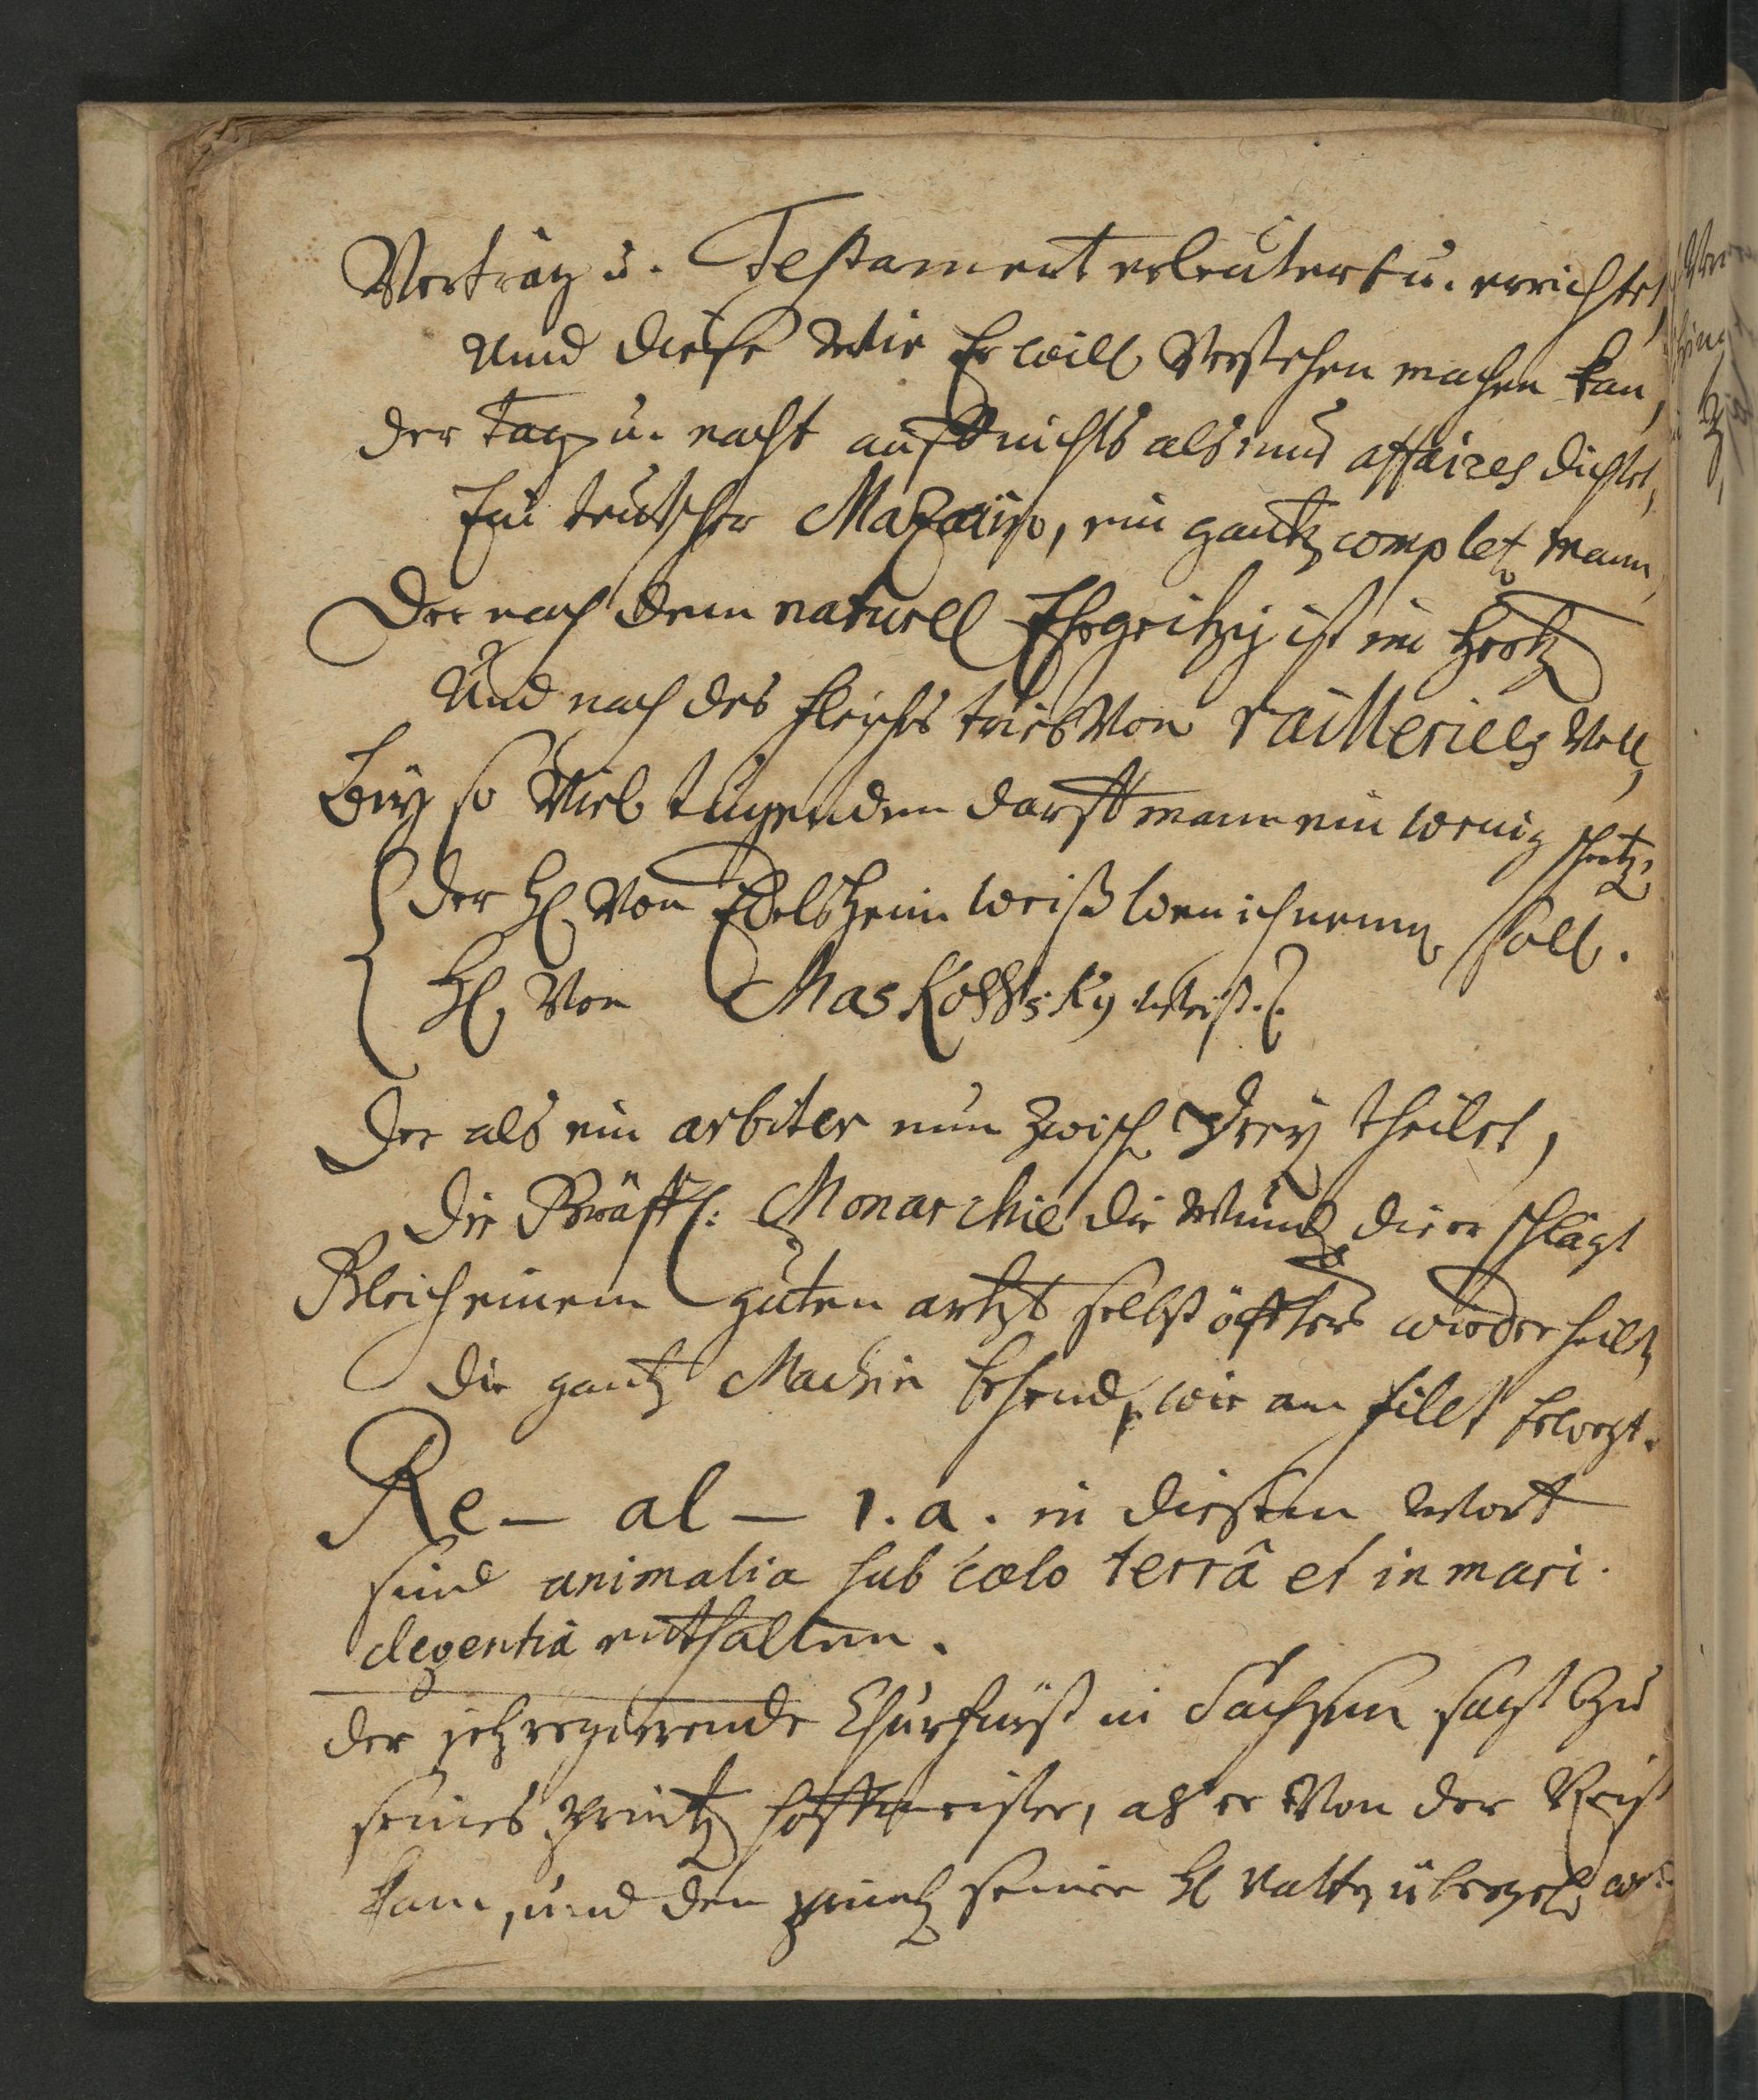 Verträg u. Testament erleutert u. errichtet,
Unnd diese wie Er will Verstehen machen kan,
der Tag u. nacht auff nichts als nur affaires dichtet,
Ein teutscher Mazarin, ein gantz complet mann,
Der nach dem naturell Ehrgeitzig ist im Hertz
Und nach des fleisches trieb Von railleries Voll,
Bey so Viel tugenden darff mann ein wenig schertz,
der H. Von Edelsheim weiß wen ich nenn soll.
H. Von Maskowsky weiß.
Der als ein arbiter nun zwisch drey theilet,
die Gräffl: Monarchie die Wund die er schlägt
Gleich einem guten artzt selbst öffters wieder heilt,
die gantz Machin behend, wie am filet bewegt.
Re- al- 1. a. in diesem Wort
sind animalia sub cœlo terrâ et in mari
degentia enthalten.
der jetz regierende Churfürst in Sachsen sagt zu
seines printz hoffmeister, als er Von der Reiß
kam, und den printz seiner H Vatter übergeb